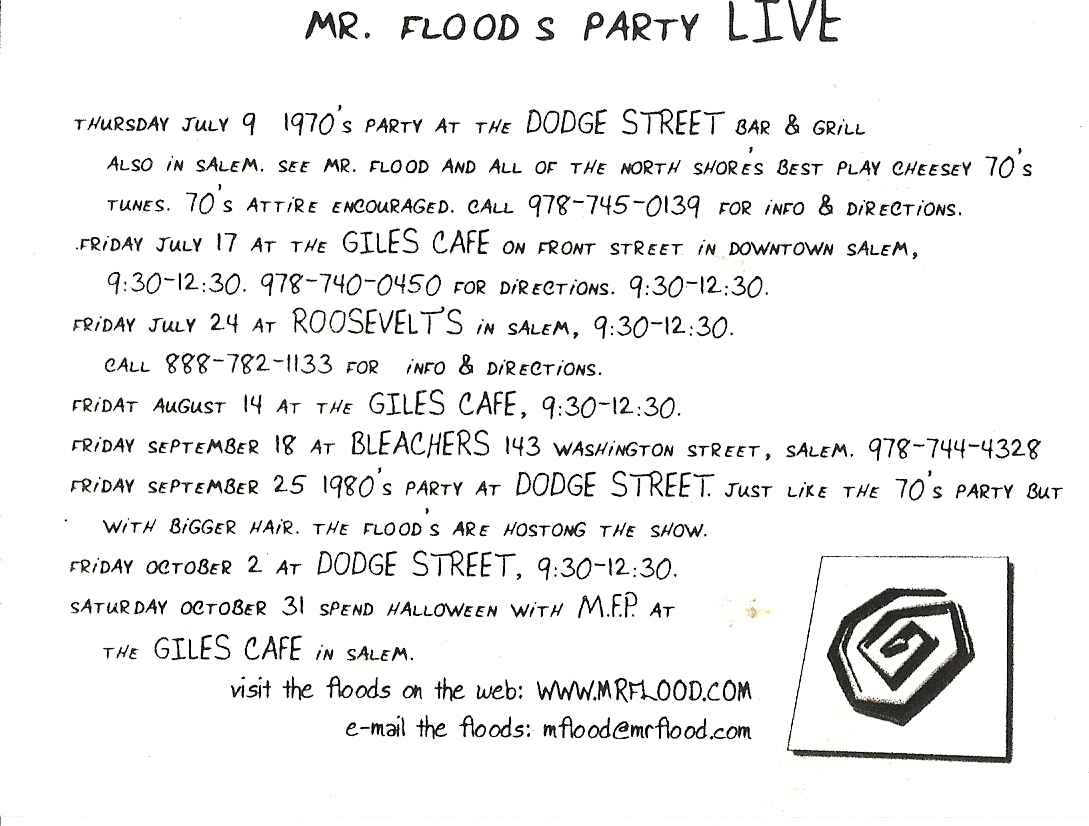 MR. FLOOD'S PARTY LIVE
THURSDAY JULY 9 1970's PARTY AT THE DODGE STREET BAR & GRILL
ALSO IN SALEM. SEE MR. FLOOD AND ALL OF THE NORTH SHORE'S BEST PLAY CHEESEY 70's
TUNES. 70's ATTIRE ENCOURAGED. CALL 978-745-0139 FOR INFO & DIRECTIONS.
FRIDAY JULY 17 AT THE GILES CAFE ON FRONT STREET IN DOWNTOWN SALEM,
9:30-12:30. 978-740-0450 FOR DIRECTIONS. 9:30-12:30.
FRIDAY JULY 24 AT ROOSEVELT'S IN SALEM, 9:30-12:30.
CALL 888-782-1133 FOR INFO & DIRECTIONS.
FRIDAT AUGUST 14 AT THE GILES CAFE, 9:30-12:30.
FRIDAY SEPTEMBER 18 AT BLEACHERS 143 WASHINGTON STREET, SALEM. 978-744-4328
FRIDAY SEPTEMBER 25 1980's PARTY AT DODGE STREET. JUST LIKE THE 70's PARTY BUT
WITH BIGGER HAIR. THE FLOOD'S ARE HOSTONG THE SHOW.
FRIDAY OCTOBER 2 AT DODGE STREET, 9:30-12:30.
SATURDAY OCTOBER 31 SPEND HALLOWEEN WITH M.F.P. AT
THE GILES CAFE IN SALEM.
visit the floods on the web: WWW.MRFLOOD.COM
e-mail the floods: mflood@mrflood.com